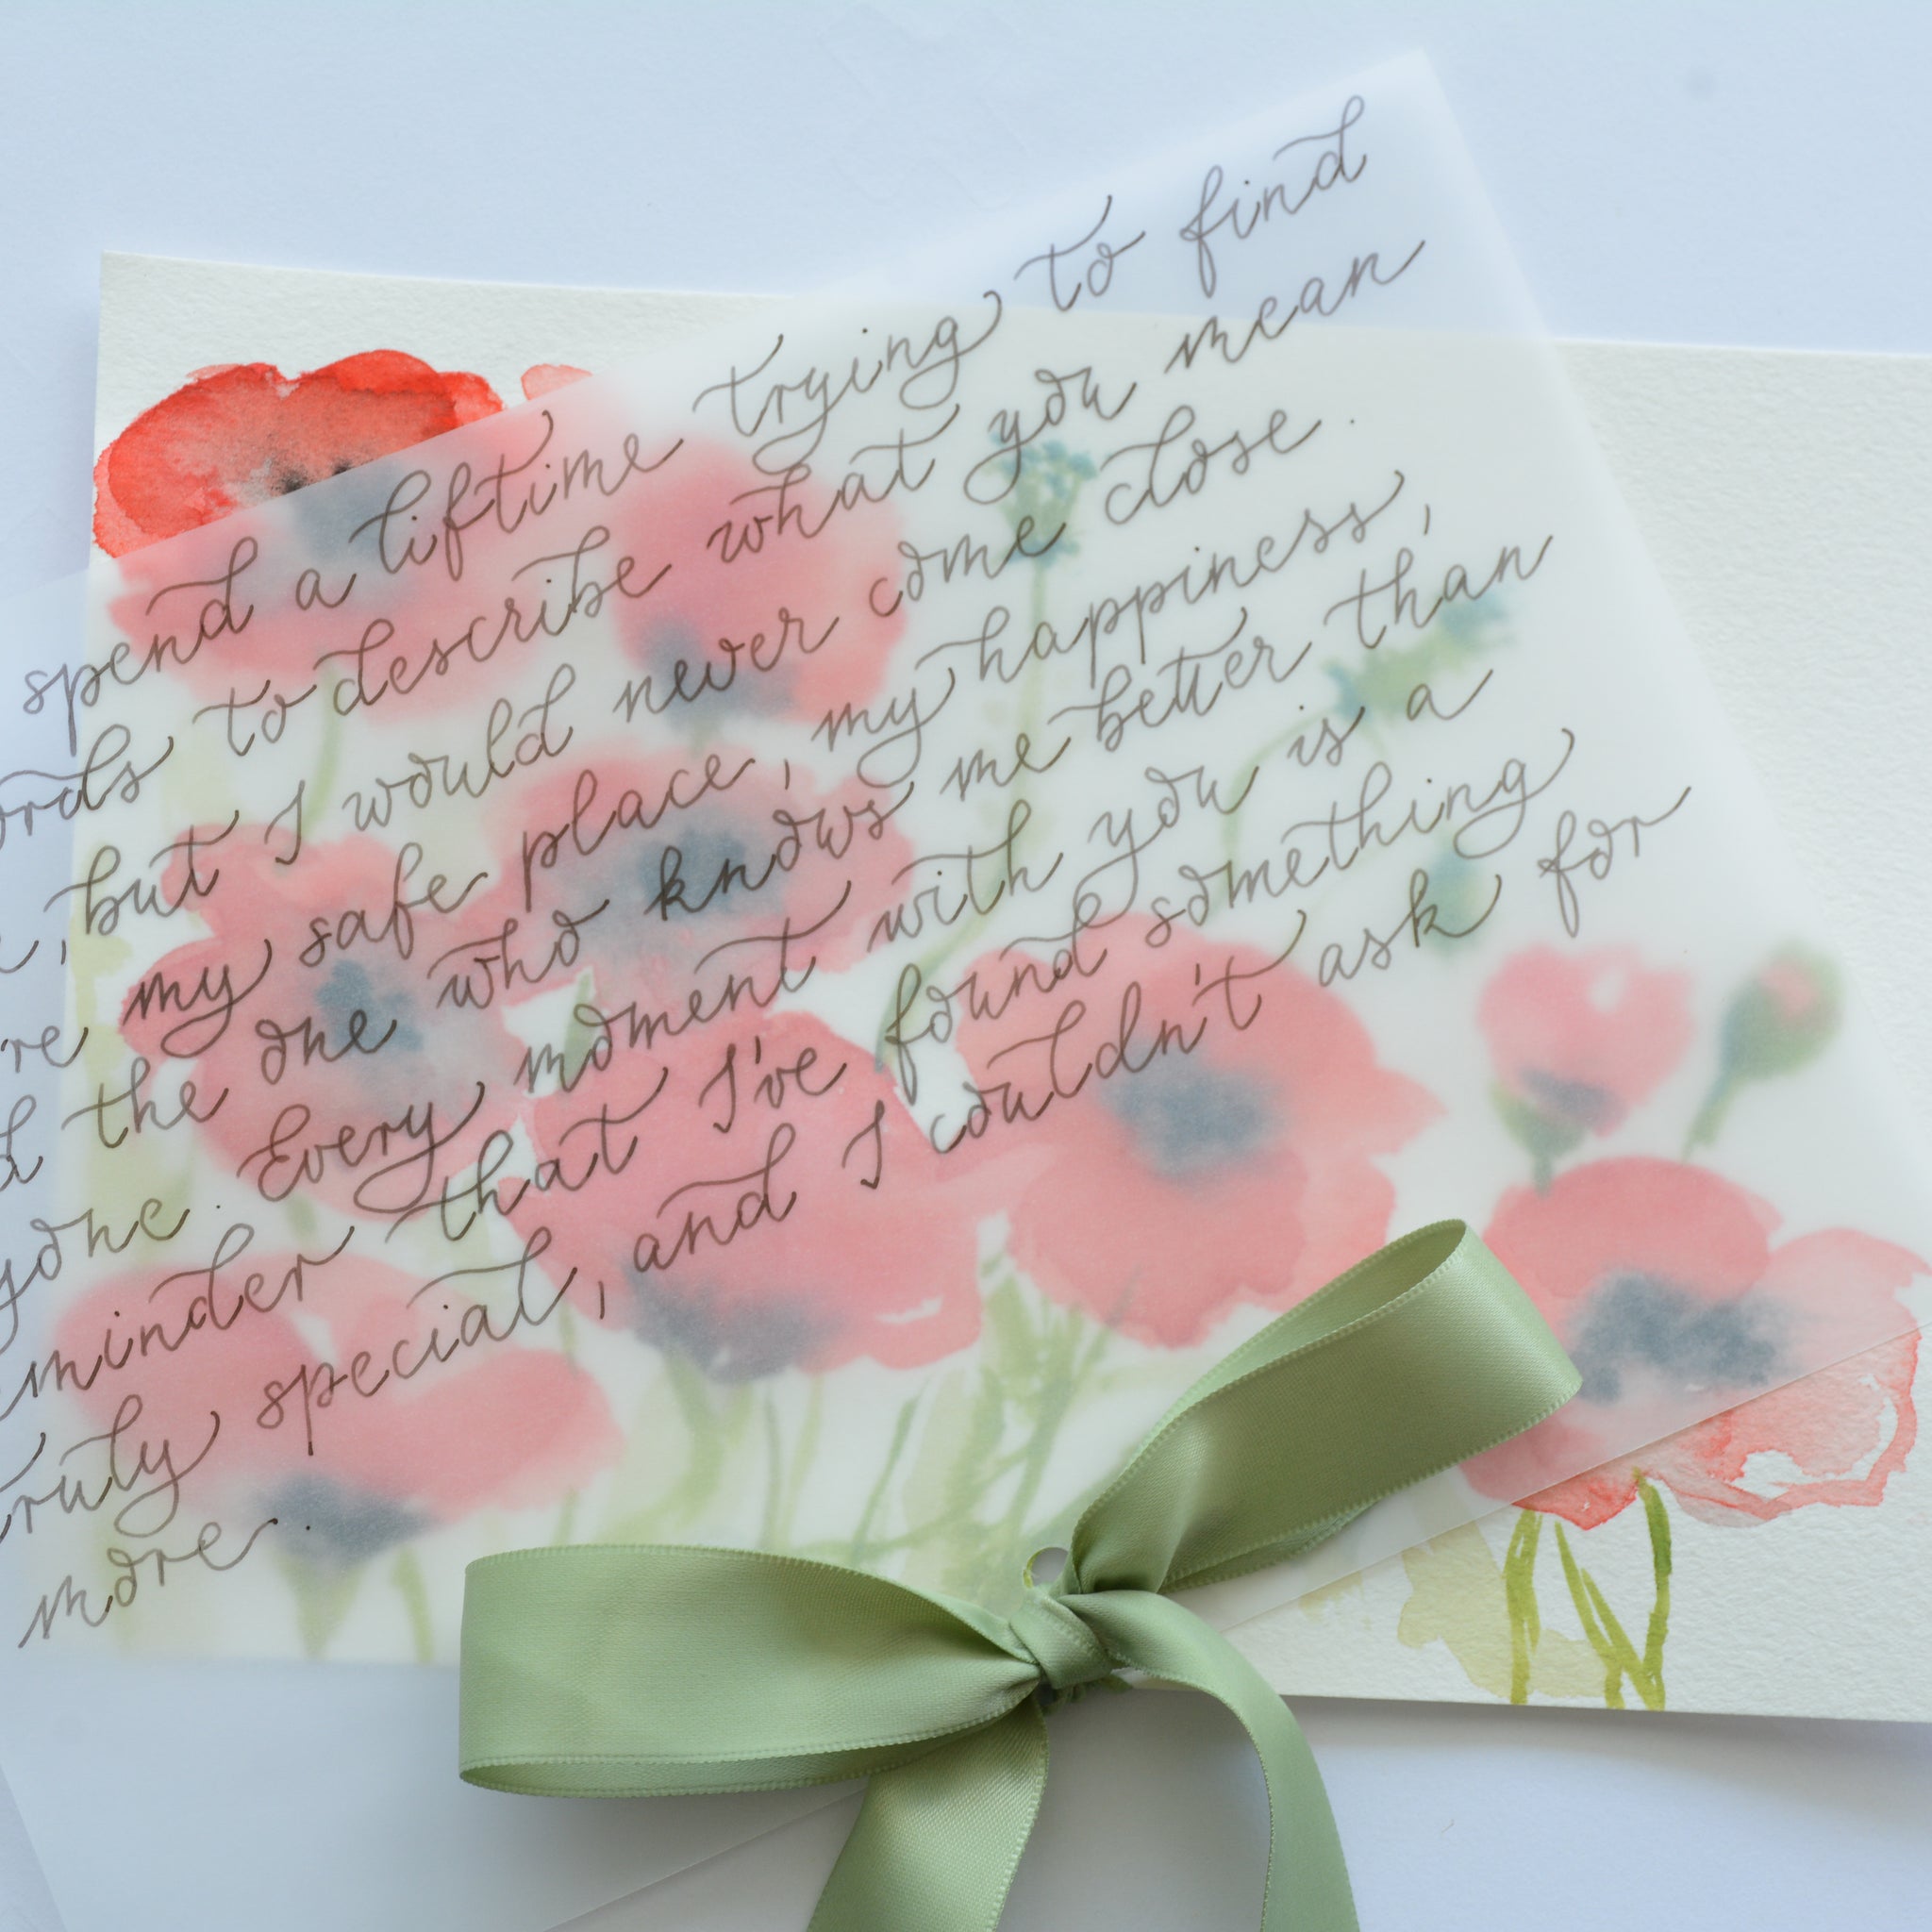 spend a liftime trying to find
ords to describe what you mean
, but I would never come close.
re my safe place, my happiness,
d the one who knows me better than
yone. Every moment with you is a
minder that I've found something
ruly special, and I couldn't ask for
more.